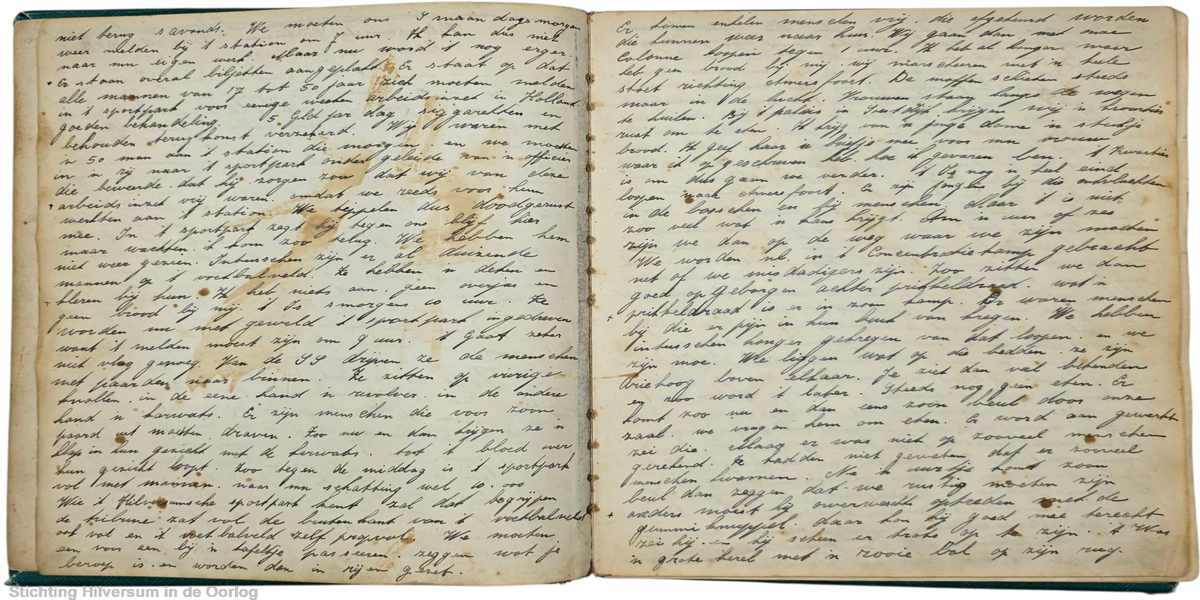 niet terug s'avonds. We moeten ons S'maandagsmorgen
weer melden bij 't station om 7 uur. Ik kan dus niet
naar mn eigen werk. Maar nu word 't nog erger.
Er staan overal biljetten aangeplakt. Er staat op dat
alle mannen van 17 tot 50 jaar zich moeten melden
in 't sportpark voor eenige weeken arbeidsinzet in Holland
goeden behandeling. 5 Gld per dag siggaretten en
behouden terugkomst verzekerd. Wij waren met
'n 50 man aan 't station die morgen en we moeten
in naar 't sportpark onder geleide van 'n officier
die beweerde dat hij zorgen zou dat wij van deze
arbeidsinzet vrij waren omdat we reeds voor hun
werkten aan 't station. We stippelen dus doodgerust
mee. In 't sportpark zegt hij tegen ons blijf hier
maar wachten. ik kom zoo terug. We hebben hem
niet weer gezien. Intusschen zijn er al duizende
mannen op 't voetbalveld. Ze hebben 'n deken en
kleren bij hun. Ik heb niets aan. geen overjas en
geen brood bij mij. 't Is smorgens 10 uur. Ze
worden nu met geweld 't sportpark ingedreven
want 't melden moest zijn om 9 uur. 't Gaat zeker
niet vlug genoeg. Van de SS drijven ze de menschen
met paarden naar binnen. Ze zitten op vurige
knollen. in de eene hand 'n revolver. in de andere
hand 'n karwats. Er zijn menschen die voor zoon
paard uit moeten draven. Zoo nu en dan krijgen ze 'n
klap in hun gezicht met de karwats. tot 't bloed over
hun gezicht loopt. Zoo tegen de middag is 't sportpark
vol met mannen. naar mn schatting wel 10.000
Wie 't Hilversumsche sportpark kent zal dat begrijpen
de tribune zat vol de buitenkant van 't voetbalveld
ook vol en 't voetbalveld zelf propvol. We moeten
een voor een bij 'n tafeltje passeeren. zeggen wat je
beroep is en worden dan in rijen gezet.
Er komen enkelen menschen vrij. die afgekeurd worden
die kunnen weer naar huis. Wij gaan dan met onze
Colonne loopen tegen 1 uur. Ik heb al honger want
heb geen brood bij mij. wij marscheren met 'n heele
stoet richting Amersfoort. De moffen schieten steeds
maar in de lucht. Vrouwen staan langs de wegen
te huilen. Bij 't paleis in Soestdijk krijgen wij 'n kwartier
rust om te eten. Ik krijg van 'n jonge dame 'n stukje
brood. Ik geef haar 'n briefje mee voor mn vrouw
waar ik op geschreven heb. hoe 't gevaren ben. 't Kwartier
is om dus gaan we verder. 't Is nog 'n heel eind
loopen naar Amersfoort. Er zijn jongens bij die ontplachten
in de looschen en bij menschen. Maar 't is niet
zoo veel wat 'n kans krijgt. Om 'n uur of zes
zijn we dan op de weg waar we zijn moeten
We worden nl. in 't Concentratiekamp gebracht
net of we misdadigers zijn. Zoo zitten we dan
goed opgeborgen achter prikkeldraad. wat 'n
prikkeldraad is er in zoon kamp. Er waren menschen
bij die er pijn in hun buik van kregen. We hebben
intusschen honger gekregen van dat loopen. en we
zijn moe. We liggen wat op de bedden. ze zijn
driehoog boven elkaar. Je ziet dan veel bekenden
en zoo word 't later. Steeds nog geen eten. Er
komt zoo nu en dan eens zoon beul door onze
zaal. we vragen hem om eten. Er word aan gewerkt
zei die. Maar er was niet op zooveel menschen
gerekend. Ze hadden niet geweten dat er zooveel
menschen kwamen. Na 'n uurtje komt zoon
beul dan zeggen dat we rustig moeten zijn
anders moest hij overwacht optreden met de
gummiknuppel. daar kon hij goed mee terecht
zei hij. en hij scheen er trots op te zijn. 't Was
'n grote kerel met 'n rooie bal op zijn rug.
Stichting Hilversum in de Oorlog